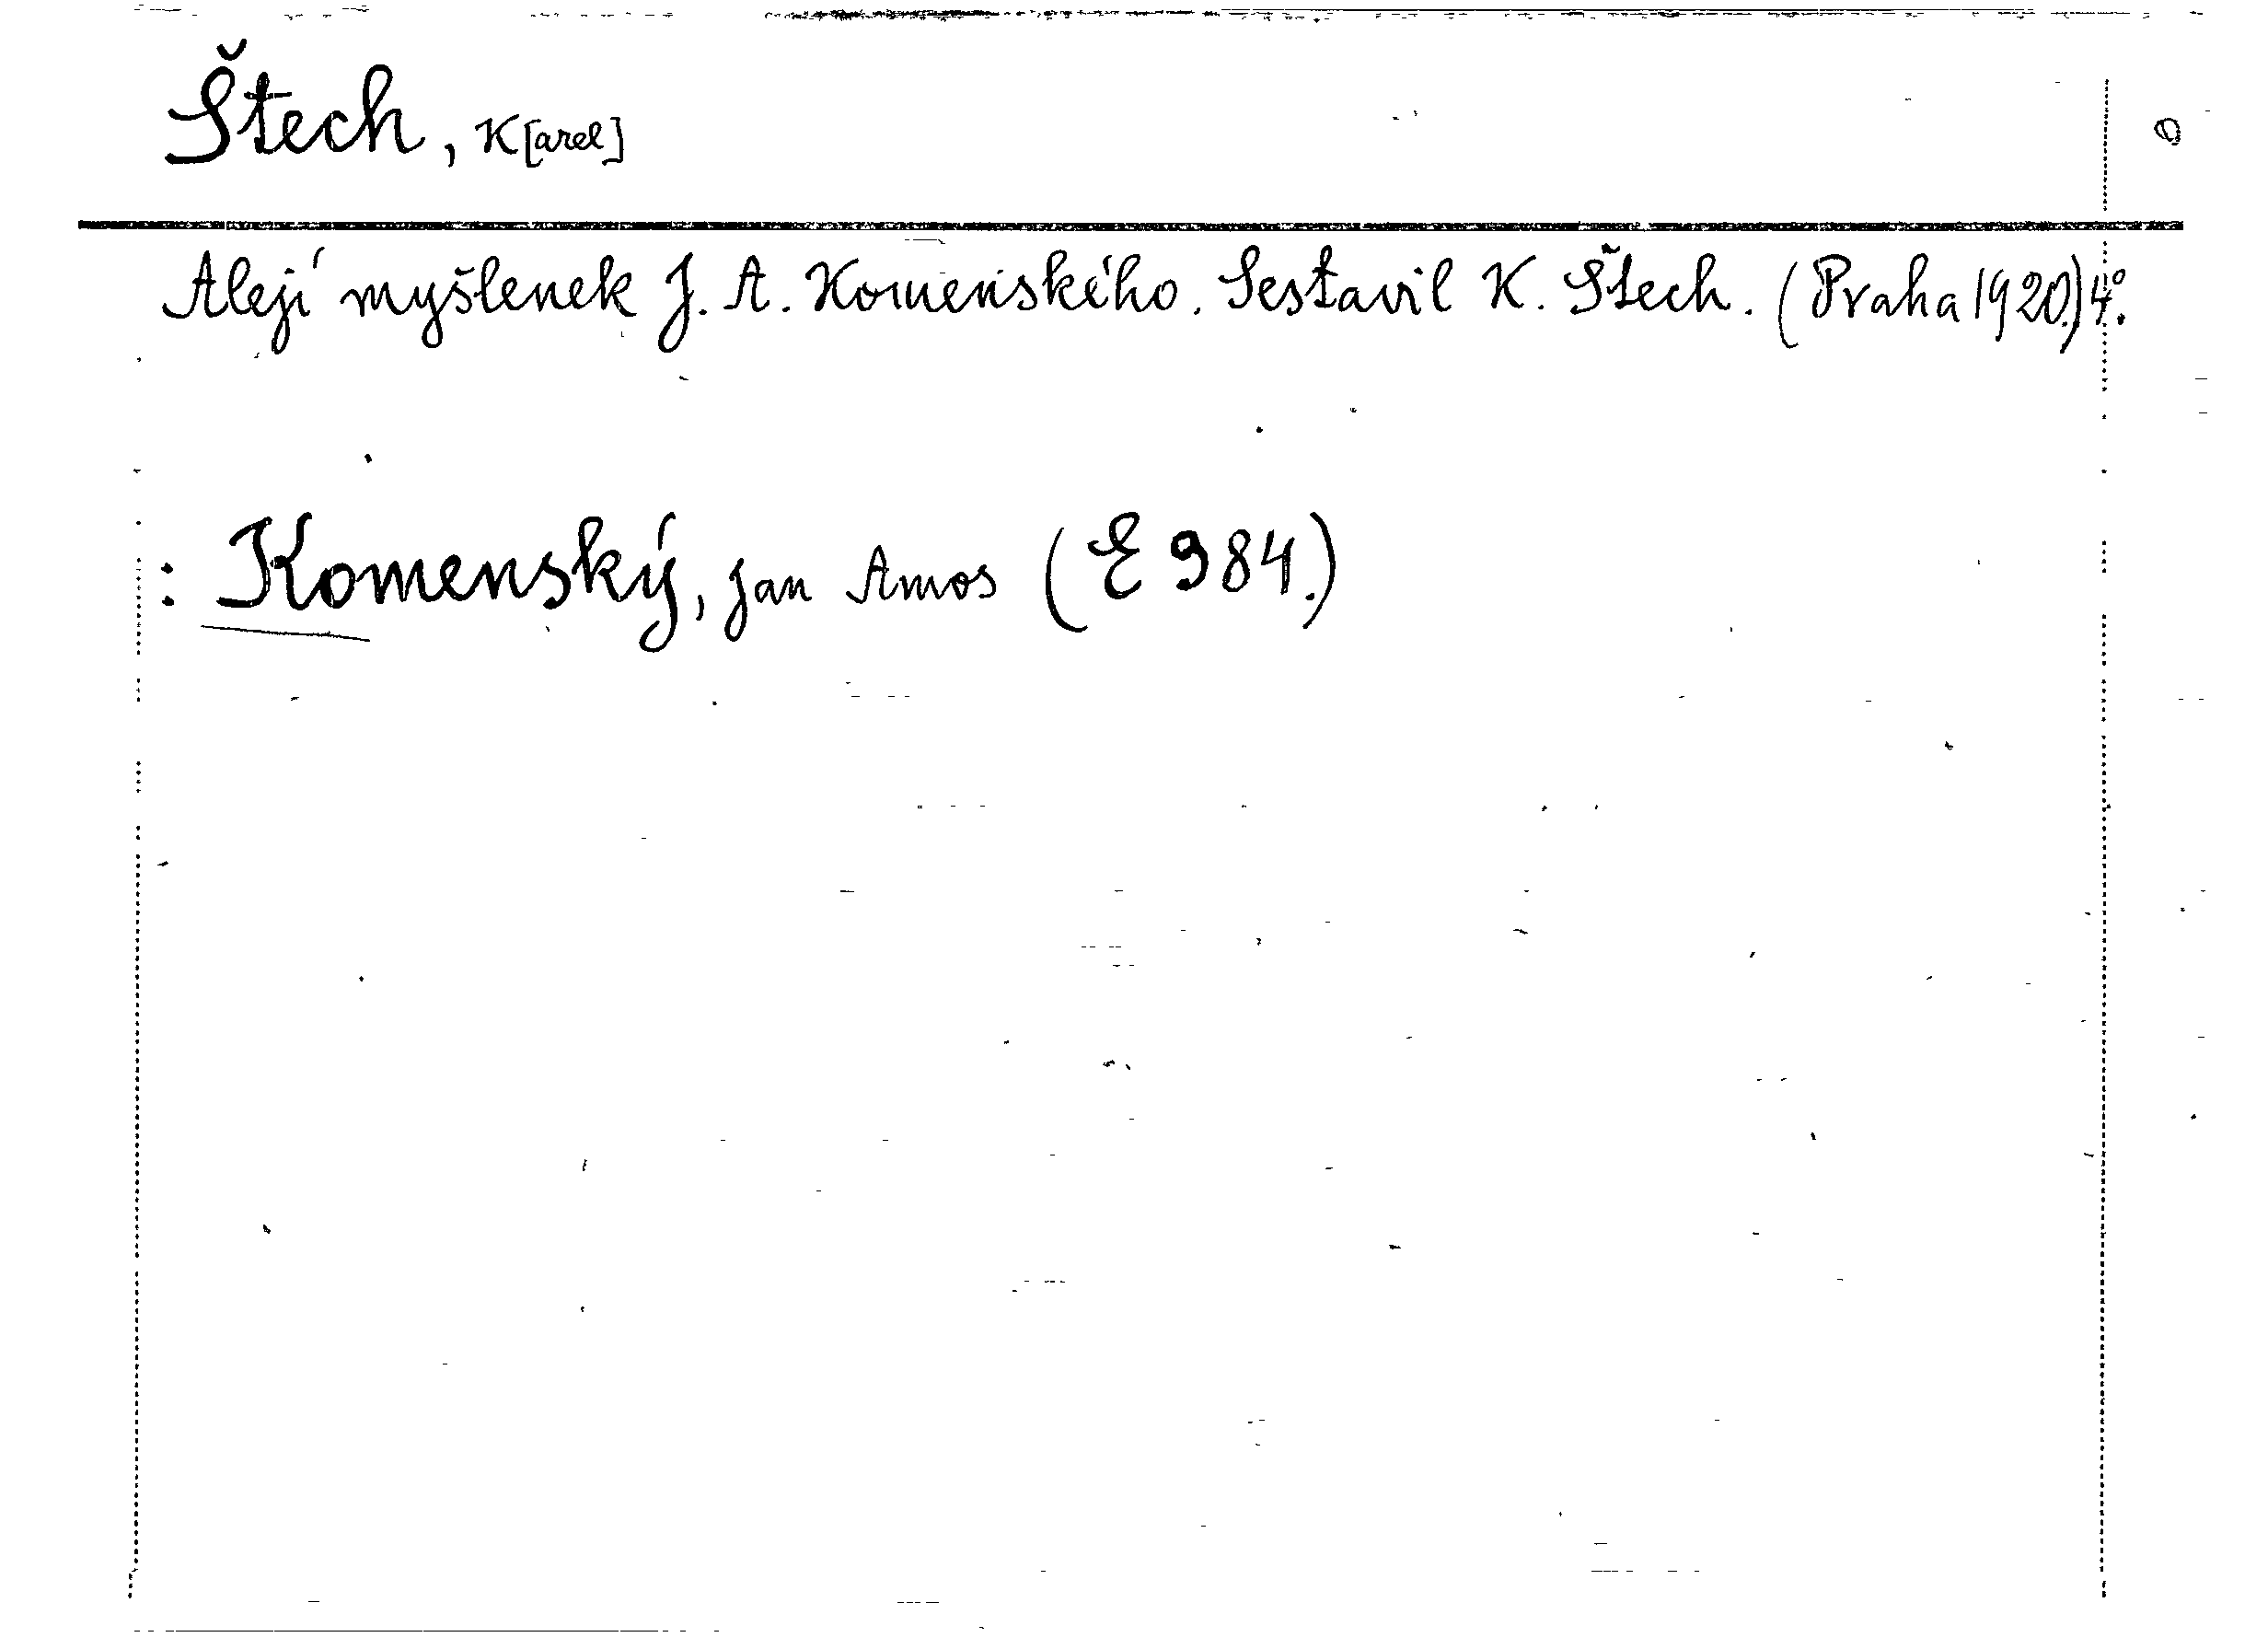 Štech, K[arel]
Alejí myšlenek J. A. Komenského. Sestavil K. Štech. (Praha 1920.) 4°.
: Komenský, Jan Amos (E 984.)